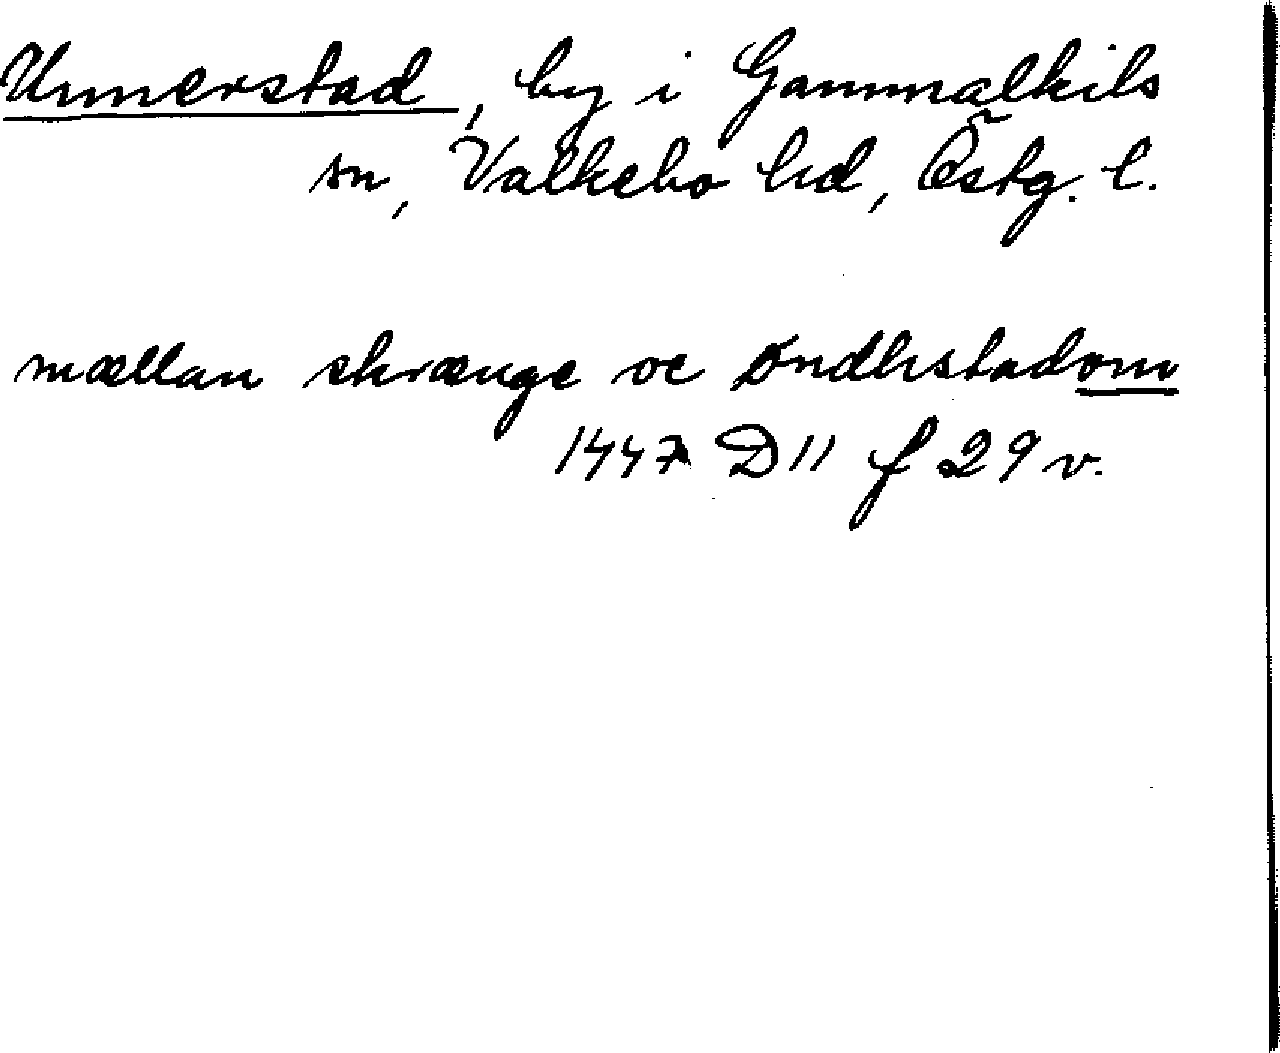 Unnerstad, by i Gammalkils
sn, Valkebo hd, Östg. l.
mællan skrænge oc øndhstadom
1447 D 11 f 29 v.